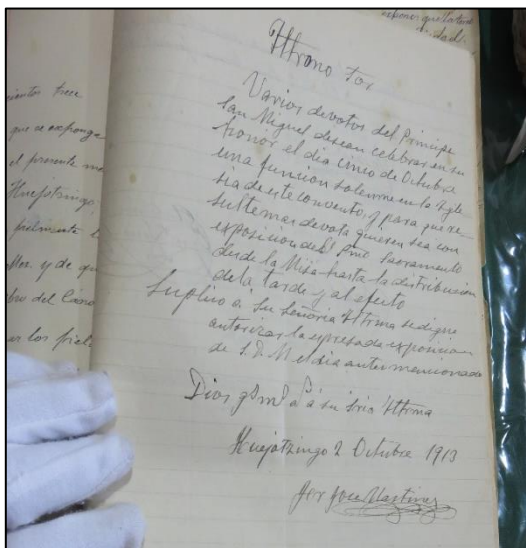 esponer que la tarde
Iltrmo Sor
Varios devotos del Principe
San Miguel desean celebrar en su
honor el dia cinco de Octubre
una funcion solemne en la Igle
sia de este convento, y para que re-
sulte mas devota quieren sea con
exposicion del Smo Sacramento
desde la Misa hasta la distribucion
de la tarde y al efecto
Suplico a Su Señoria Iltrma se digne
autorizar la expresada exposicion
de S. D. M el dia antes mencionado
Dios g á su Sria Iltrma
Huejotzingo 2 Octubre 1913
Fer Jose Martinez
cientos trece
que se exponga
el presente
Huejotzingo
y de que
bro del
los fiel